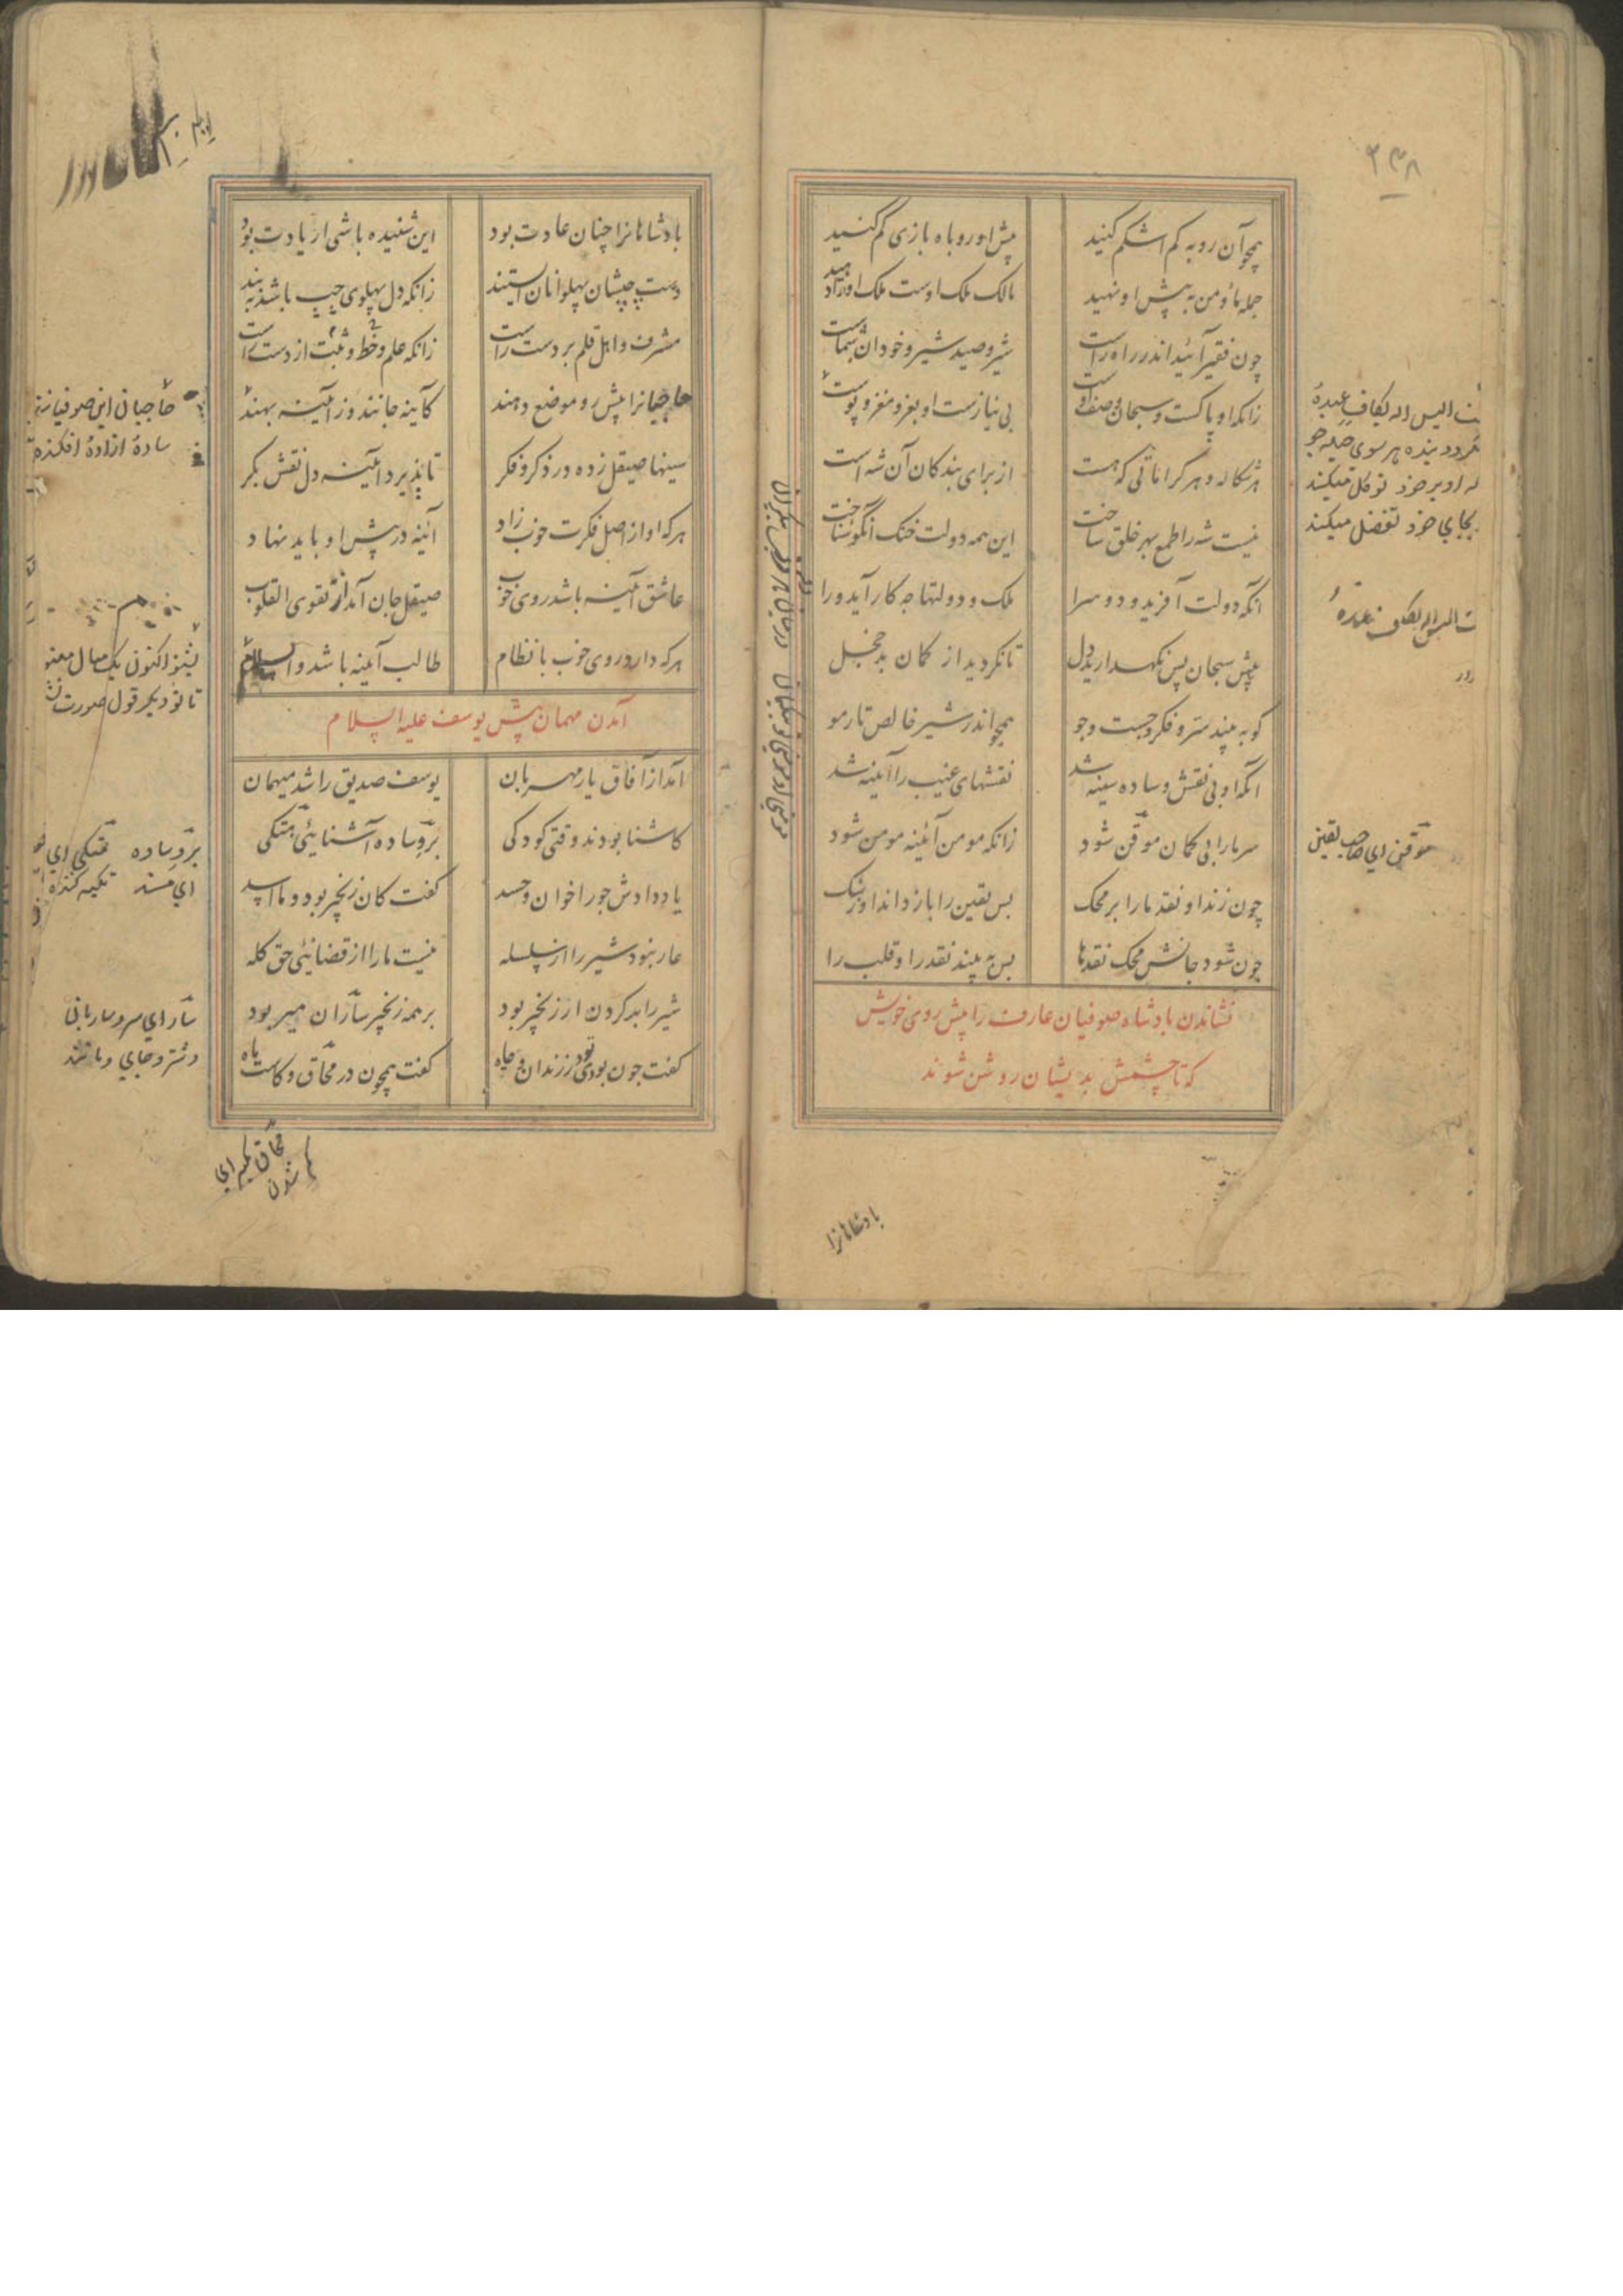 ۲۳۸
همچو آن روبه کم اشکم کنید
پیش او روباه بازی کم کنید
جمله ما و من به پیش او نهید
مالک ملک اوست ملک او را دهید
چون فقیر آئید اندر راه راست
شیر و صید شیر و خود آن شماست
زانکه او پاکست و سبحان وصف اوست
بی نیازست او ز نغز و مغز و پوست
هر شکار و هر کراماتی که هست
از برای بندکان آن شه است
نیست شه را طمع بهر خلق ساخت
این همه دولت خنک آنکو شناخت
انکه دولت آفرید و دو سرا
ملک و دولتها چه کار آید ورا
پیش سبحان پس نکهدارید دل
تا نکردید از کمان بد خجل
کو به بیند سر و فکر و جست و جو
همچو اندر شیر خالص تار مو
آنکه او بی نقش و ساده سینه شد
نقشهای غیب را آئینه شد
سر ما را بی کمان موقن شود
زانکه مومن آئینه مومن شود
چون زند او نقد ما را بر محک
بس یقین را باز داند او ز شک
چون شود جانش محک نقدها
بس به بیند نقد را و قلب را
نشاندن بادشاه صوفیان عارف را پیش روی خویش
که تا چشمش بدیشان روشن شوند
الیس اله بکاف عبده
نکردد بنده هر سوی حیله جو
او بر خود توکل میکند
بجای خود تفضل میکند
موقن ای صاحب یقین
بادشاهانرا
بادشاهانرا چنان عادت بود
این شنیده باشی ار یادت بود
دست چپشان پهلوانان ایستند
زانکه دل پهلوی چپ باشد به بند
مشرف و اهل قلم بر دست راست
زانکه علم و خط و ثبت از دست راست
صوفیانرا پیش رو موضع دهند
کاینه جانند وز آئینه بهند
سینها صیقل زده در ذکر و فکر
تا پذیرد آئینه دل نقش بکر
هر که او از اصل فکرت خوب زاد
آئنه در پیش او باید نهاد
عاشق آئینه باشد روی خوب
صیقل جان آمد از تقوی القلوب
هر که دارد روی خوب با نظام
طالب آئینه باشد والسلام
آمدن مهمان پیش یوسف علیه السلام
آمد از آفاق یار مهربان
یوسف صدیق را شد میهمان
کاشنا بودند وقتی کودکی
بر وساده آشنایئی متکی
یاد دادش جور اخوان و حسد
کفت کان زنجیر بود و ما اسد
عار نبود شیر را از سلسله
نیست ما را از قضائی حق کله
شیر را بر کردن ار زنجیر بود
بر همه زنجیر سازان میر بود
کفت چون بودی تو در زندان و چاه
کفت همچون در محاق و کاست ماه
حاجبان این صوفیانند
ساده ازاده افکنده
بشنو اکنون یک مثال معنو
تا تو دیکر قول صورت
بر وساده متکی ای
ای مسند تکیه کننده
سار ای سر و ساربانی
و شتر و جای و مانند
محاق بمیم ای
کم شدن